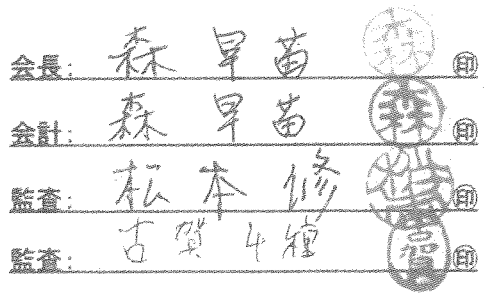 会長: 森 早苗 森 ㊞
会計: 森 早苗 森 ㊞
監査: 松本 修 ㊞
監査: 古賀 ㊞